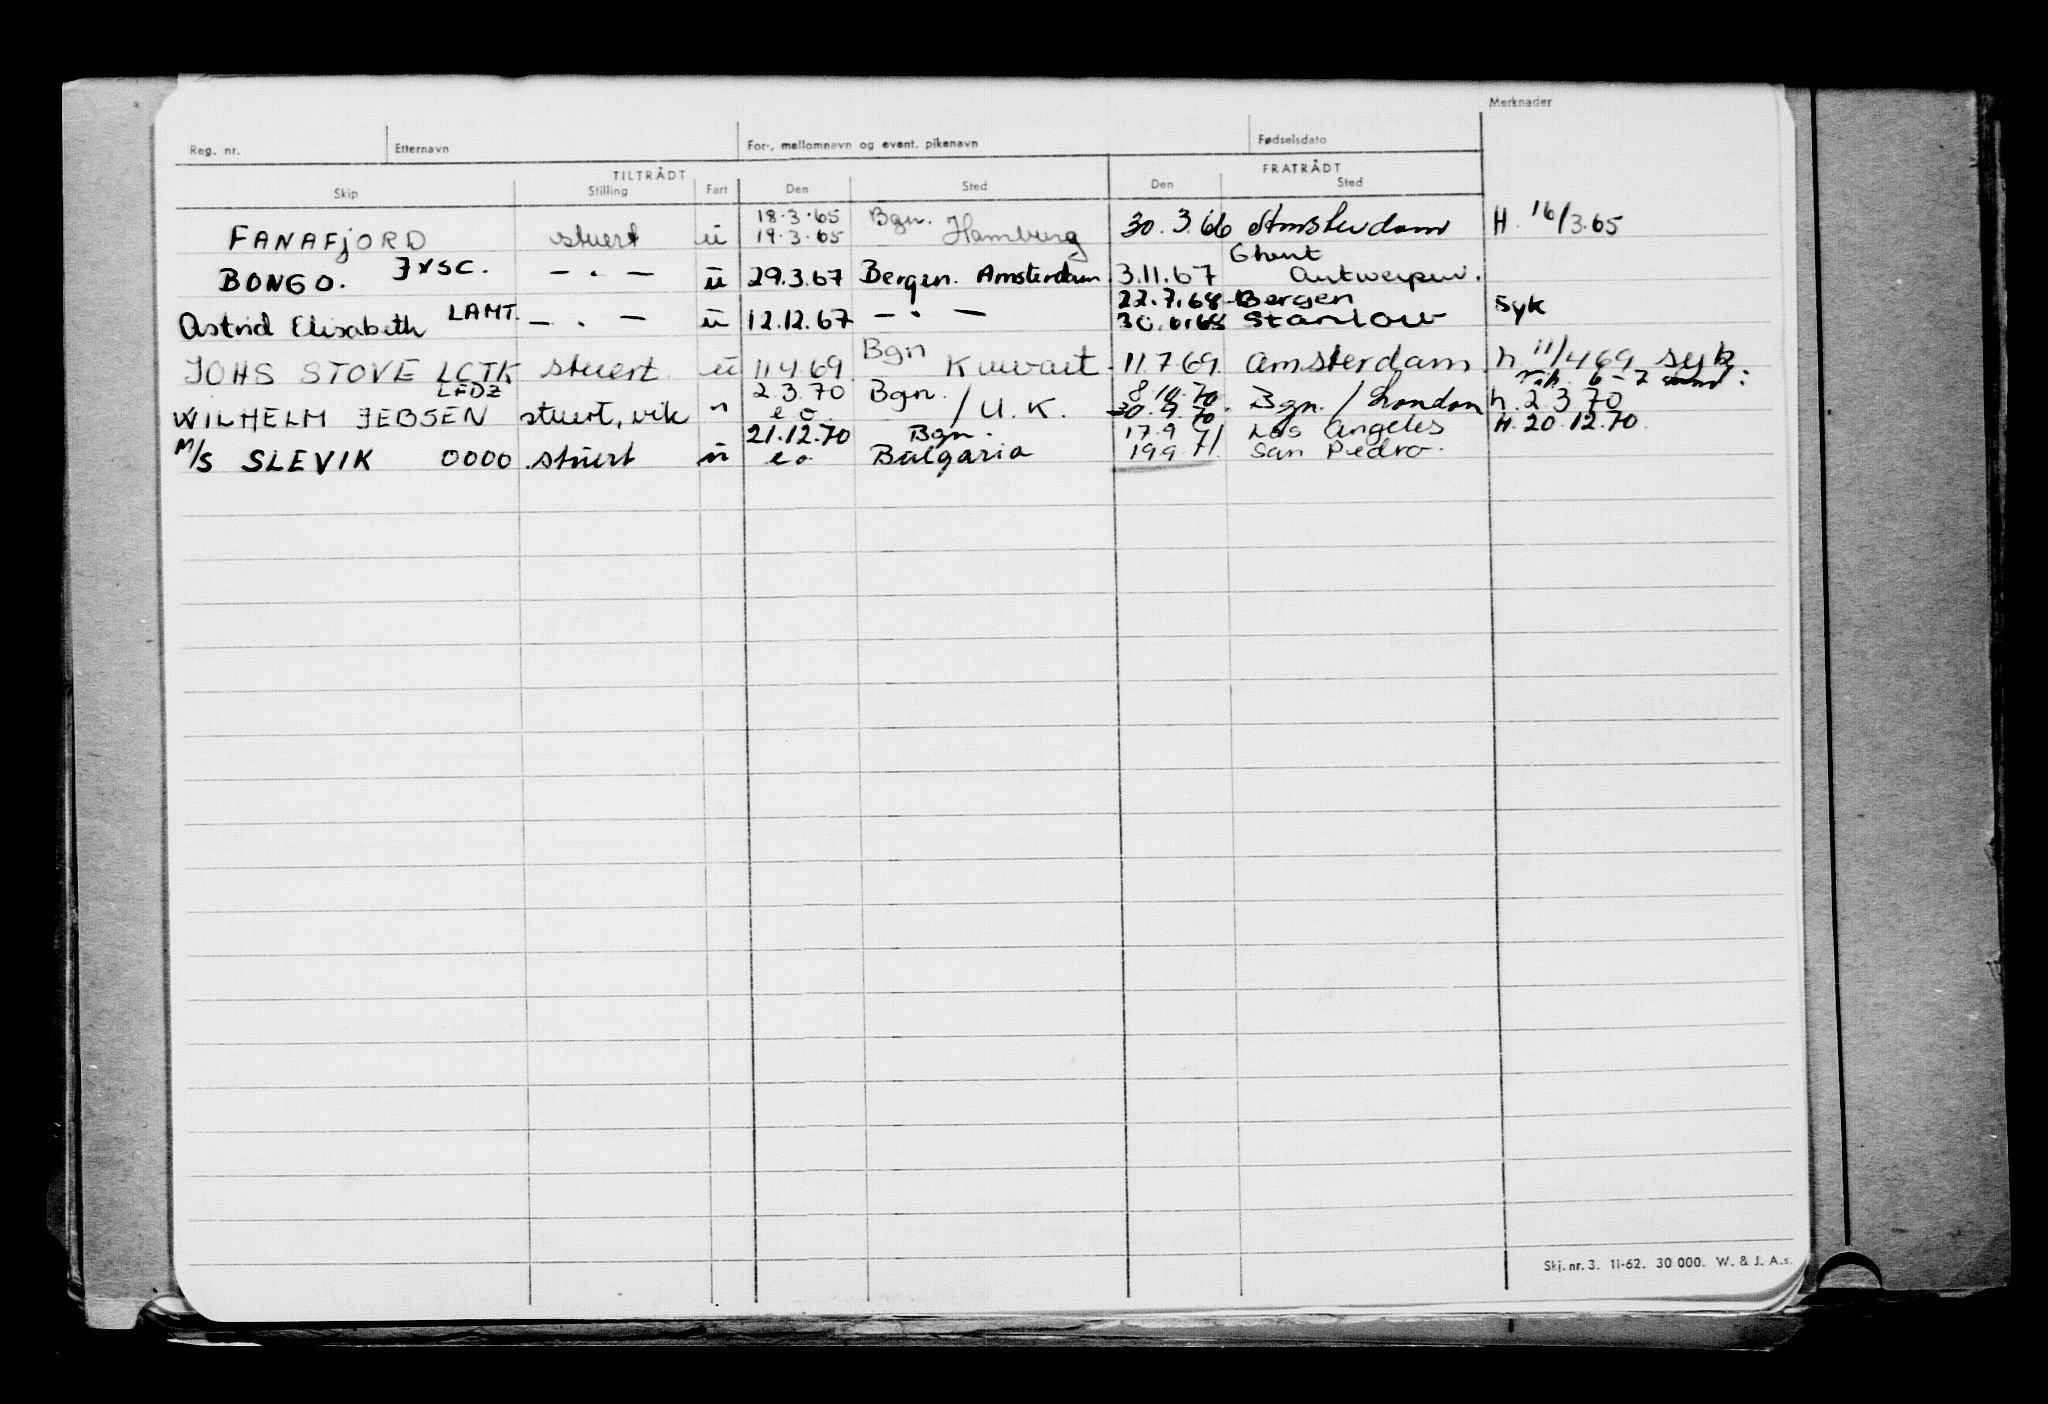 Merknader
Reg. nr. Etternavn For-, mellomnavn og event. pikenavn Fødselsdato
TILTRÅDT FRATRÅDT
Skip Stilling Fart Den Sted Den Sted
18.3.65 Bgn.
FANAFJORD stuert u 19.3.65 Hamburg 30.3.66 Amsterdam H. 16/3.65
Ghent
BONGO. JXSC. — . — u 29.3.67 Bergen. Amsterdam 3.11.67 Antwerpen.
22.7.68 Bergen
Astrid Elisabeth LAMT. — . — u 12.12.67 — . — 30.6.68 Stanlow Syk
Bgn
JOHS STOVE LCTK stuert u 11.4.69 Kuwait 11.7.69 Amsterdam h. 11/4 69 syk
LEDZ 2.3.70 Bgn. 8.10.70 6-7
WILHELM JEBSEN stuert, vik " e o / U.K. 30.9.70 Bgn. / London h. 2.3.70
21.12.70 Bgn. 17.9.71 Los Angeles H. 20.12.70.
M/S SLEVIK 0000 stuert u e o Bulgaria 19.9.71. San Pedro.
Skj. nr. 3. 11-62. 30 000. W. & J. A.s.